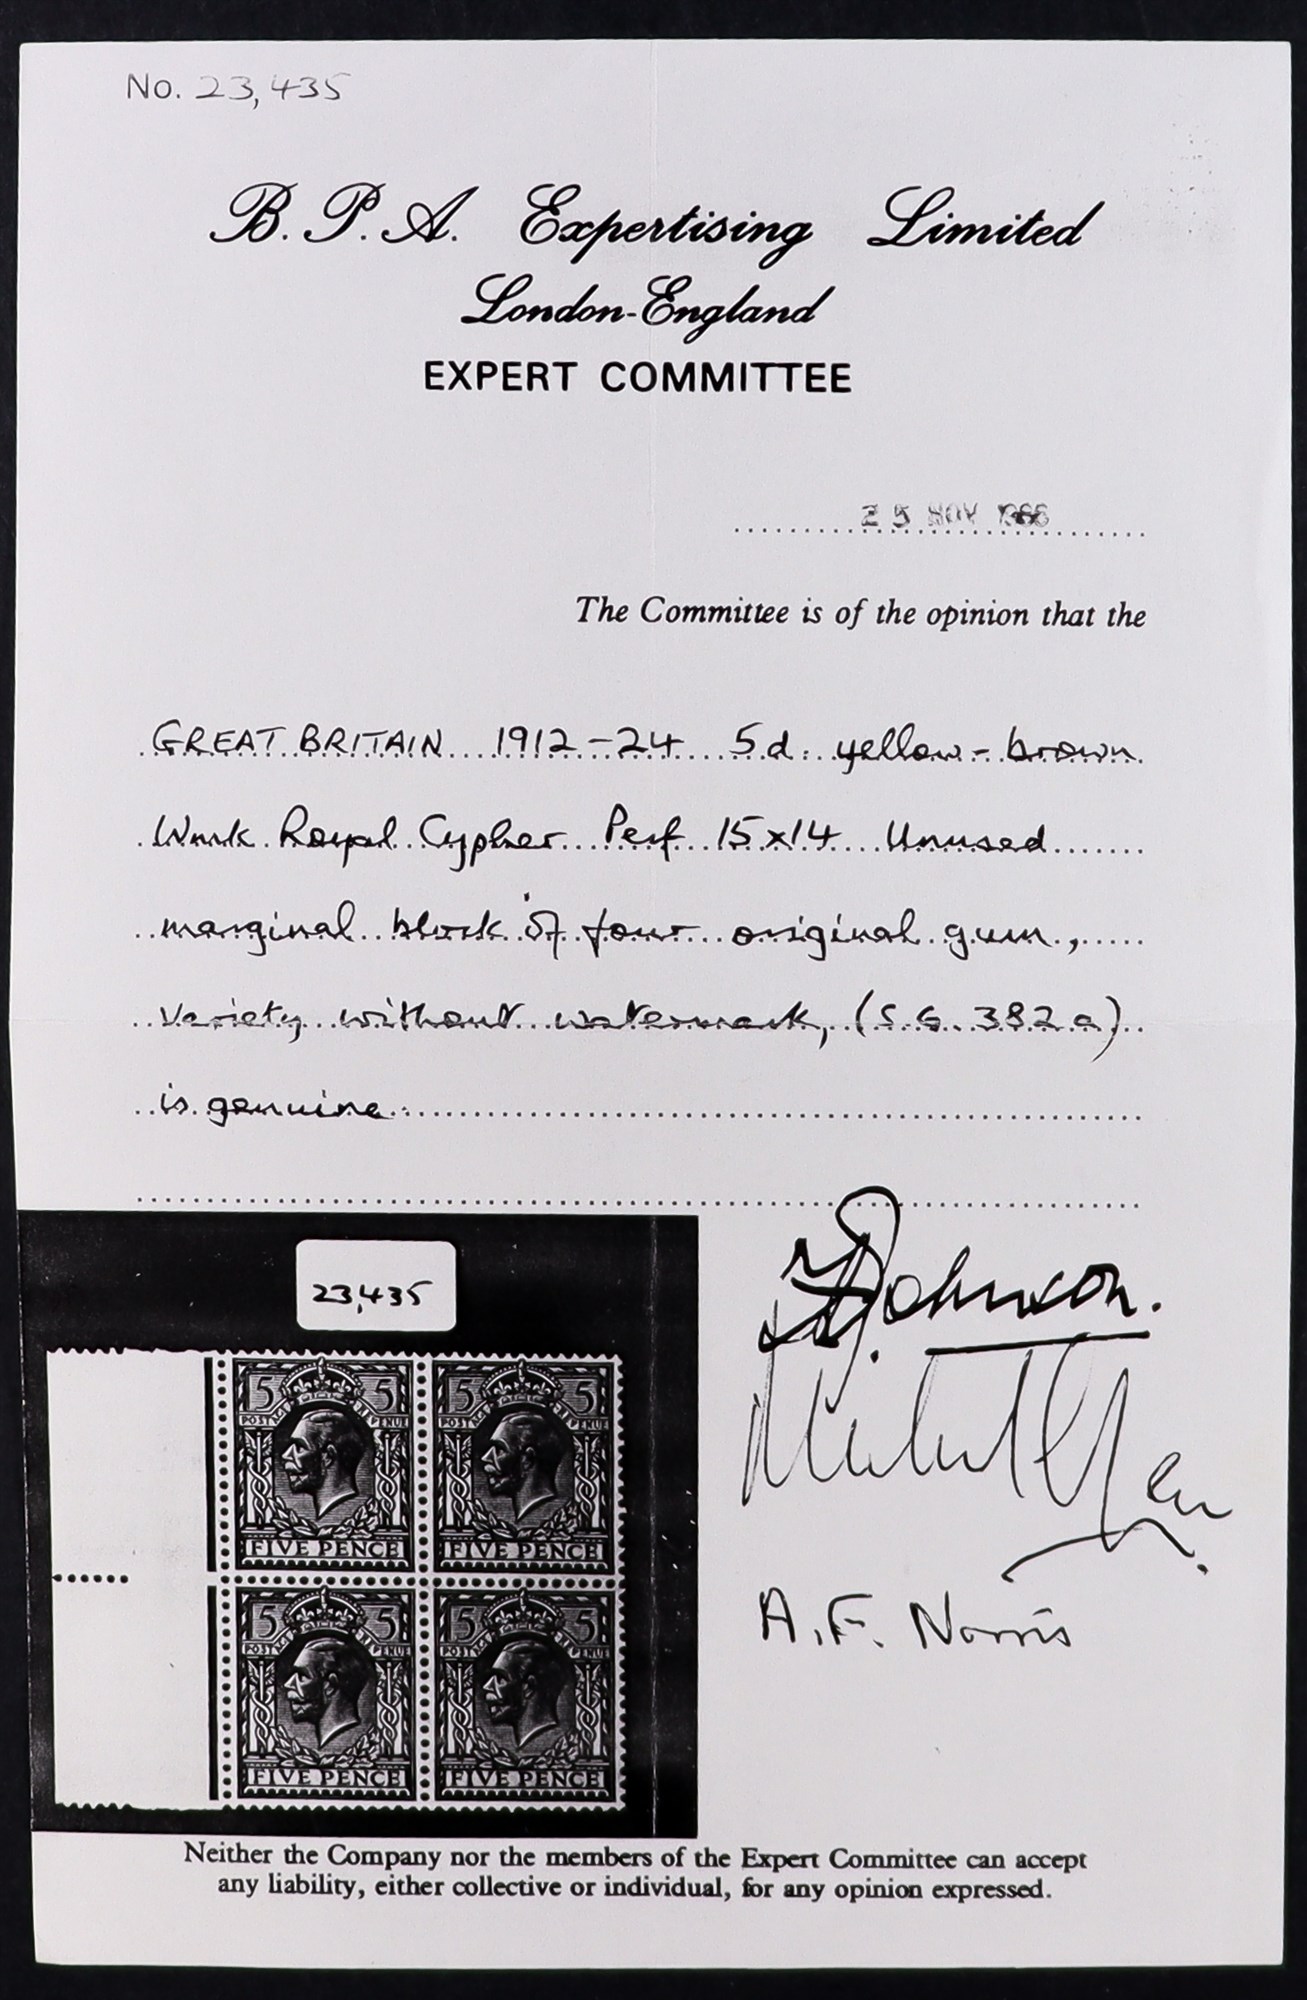 No. 23,435
B. P. A. Expertising Limited
London-England
EXPERT COMMITTEE
25 NOV
The Committee is of the opinion that the
GREAT BRITAIN 1912-24 5d. yellow-brown
Wmk Royal Cypher Perf 15x14 Unused
marginal block of four original gum,
variety without watermark, (S.G. 382a)
is genuine.
23,435
5 5 5 5
POSTAGE REVENUE POSTAGE REVENUE
FIVE PENCE FIVE PENCE
5 5 5 5
POSTAGE REVENUE POSTAGE REVENUE
FIVE PENCE FIVE PENCE
Johnson.
A. F. Norris
Neither the Company nor the members of the Expert Committee can accept
any liability, either collective or individual, for any opinion expressed.